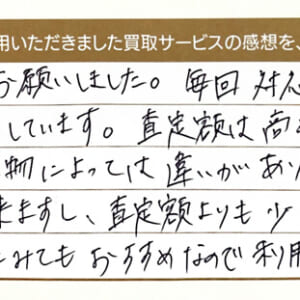 用いただきました買取サービスの感想を、
お願いしました。毎回 対応
しています。査定額は高
物によっては違いがあり
来ますし、査定額よりも少
みても おすすめなので利用